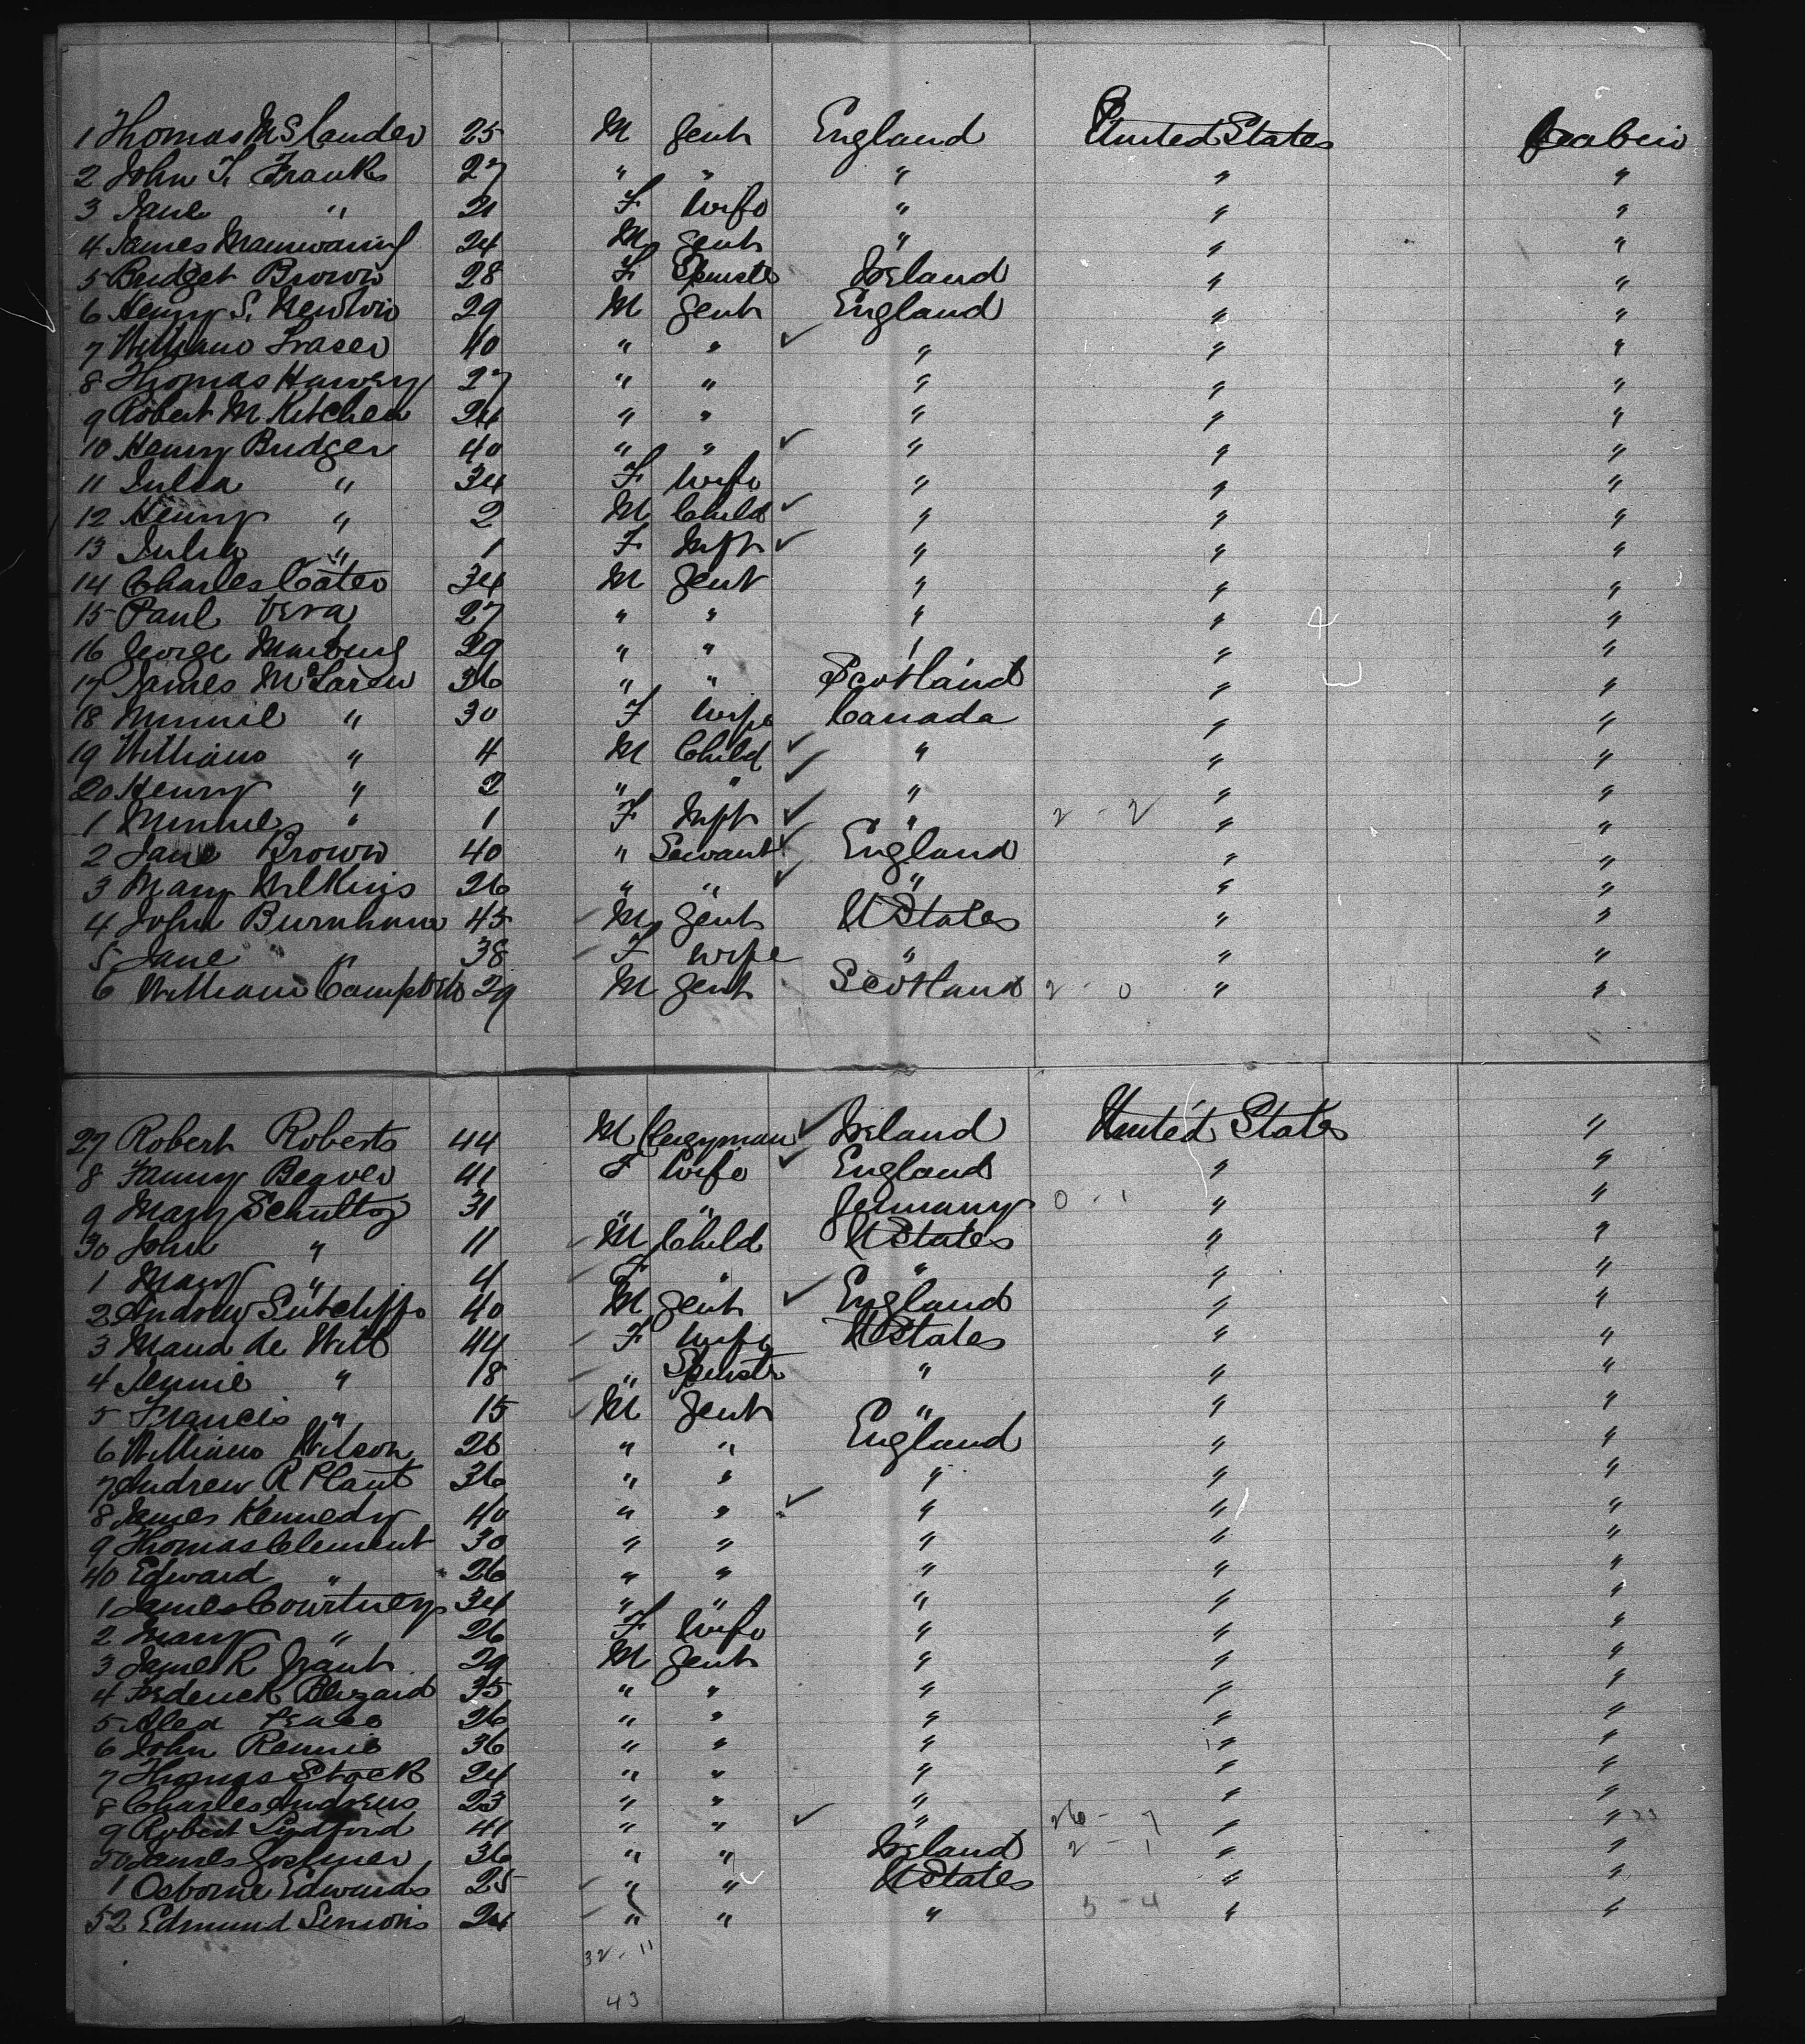 1 Thomas M Slander 25 M Gent England United States Cabin
2 John T. Franks 27 " " " " "
3 Jane " 21 F Wife " " "
4 James Mainwaring 24 M Gent " " "
5 Bridget Brown 28 F Spinster Ireland " "
6 Henry S. Newton 29 M Gent England " "
7 William Fraser 40 " " " " "
8 Thomas Harvey 27 " " " " "
9 Robert M Kitchen 24 " " " " "
10 Henry Bridger 40 " " " " "
11 Julia " 34 F Wife " " "
12 Henry " 2 M Child " " "
13 Julia " 1 F Inft " " "
14 Charles Cater 34 M Gent " " "
15 Paul Vera 27 " " " " "
16 George Marburg 29 " " " " "
17 James McLaren 36 " " Scotland " "
18 Minnie " 30 F Wife Canada " "
19 William " 4 M Child " " "
20 Henry " 2 " " " " "
1 Minnie " 1 F Inft " 2 - 2 " "
2 Jane Brown 40 " Servant England " "
3 Mary Wilkins 26 " " " " "
4 John Burnham 45 M Gent U States " "
5 Jane " 38 F Wife " " "
6 William Campbell 29 M Gent Scotland 2 - 0 " "
27 Robert Roberts 44 M Clergyman Ireland United States "
8 Fanny Beaver 41 F Wife England " "
9 Mary Schultz 31 " " Germany 0 - 1 " "
30 John " 11 M Child U States " "
1 Mary " 4 F " " " "
2 Andrew Sutcliffe 40 M Gent England " "
3 Maud de Witt 44 F Wife U States " "
4 Jennie " 18 " Spinstr " " "
5 Francis " 15 M Gent " " "
6 William Wilson 26 " " England " "
7 Andrew R Plant 36 " " " " "
8 James Kennedy 40 " " " " "
9 Thomas Clement 30 " " " " "
40 Edward " 26 " " " " "
1 James Courtney 34 " " " " "
2 Mary " 26 F Wife " " "
3 James R Grant 29 M Gent " " "
4 Frederick Blizard 35 " " " " "
5 Alex 26 " " " " "
6 John Rennie 36 " " " " "
7 Thomas Stock 24 " " " " "
8 Charles Andrews 23 " " " " "
9 Robert Lydford 41 " " " 26 - 7 " " 33
50 James 36 " " Ireland 2 - 1 " "
1 Osborne Edwards 25 " " U States " "
52 Edmund Simons 24 " " " 5 - 4 " "
32 - 11
43